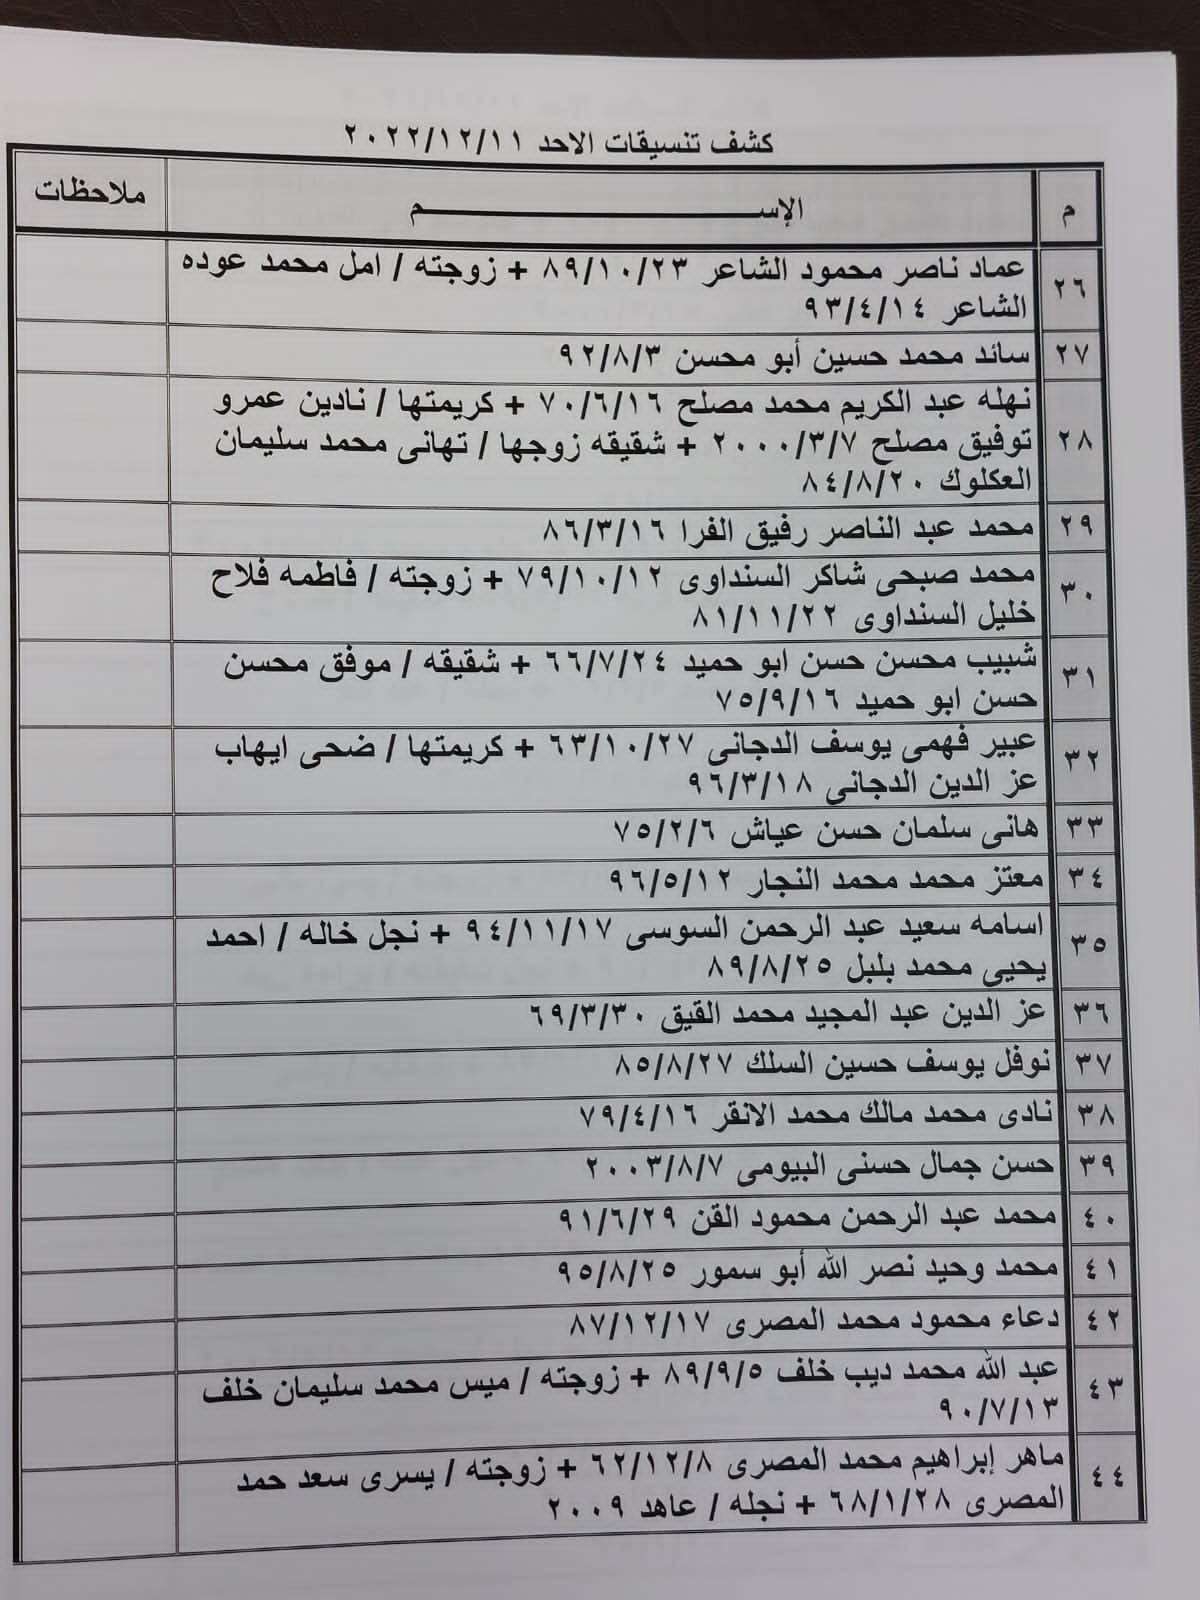 كشف تنسيقات الاحد ٢٠٢٢/١٢/١١
م الإســـــــــم ملاحظات
٢٦ عماد ناصر محمود الشاعر ٨٩/١٠/٢٣ + زوجته / امل محمد عوده
الشاعر ٩٣/٤/١٤
٢٧ سائد محمد حسين أبو محسن ٩٢/٨/٣
٢٨ نهله عبد الكريم محمد مصلح ٧٠/٦/١٦ + كريمتها / نادين عمرو
توفيق مصلح ٢٠٠٠/٣/٧ + شقيقه زوجها / تهانى محمد سليمان
العكلوك ٨٤/٨/٢٠
٢٩ محمد عبد الناصر رفيق الفرا ٨٦/٣/١٦
٣٠ محمد صبحى شاكر السنداوى ٧٩/١٠/١٢ + زوجته / فاطمه فلاح
خليل السنداوى ٨١/١١/٢٢
٣١ شبيب محسن حسن ابو حميد ٦٦/٧/٢٤ + شقيقه / موفق محسن
حسن ابو حميد ٧٥/٩/١٦
٣٢ عبير فهمى يوسف الدجانى ٦٣/١٠/٢٧ + كريمتها / ضحى ايهاب
عز الدين الدجانى ٩٦/٣/١٨
٣٣ هانى سلمان حسن عياش ٧٥/٢/٦
٣٤ معتز محمد محمد النجار ٩٦/٥/١٢
٣٥ اسامه سعيد عبد الرحمن السوسى ٩٤/١١/١٧ + نجل خاله / احمد
يحيى محمد بلبل ٨٩/٨/٢٥
٣٦ عز الدين عبد المجيد محمد القيق ٦٩/٣/٣٠
٣٧ نوفل يوسف حسين السلك ٨٥/٨/٢٧
٣٨ نادى محمد مالك محمد الانقر ٧٩/٤/١٦
٣٩ حسن جمال حسنى البيومى ٢٠٠٣/٨/٧
٤٠ محمد عبد الرحمن محمود القن ٩١/٦/٢٩
٤١ محمد وحيد نصر الله أبو سمور ٩٥/٨/٢٥
٤٢ دعاء محمود محمد المصرى ٨٧/١٢/١٧
٤٣ عبد الله محمد ديب خلف ٨٩/٩/٥ + زوجته / ميس محمد سليمان خلف
٩٠/٧/١٣
٤٤ ماهر إبراهيم محمد المصرى ٦٢/١٢/٨ + زوجته / يسرى سعد حمد
المصرى ٦٨/١/٢٨ + نجله / عاهد ٢٠٠٩